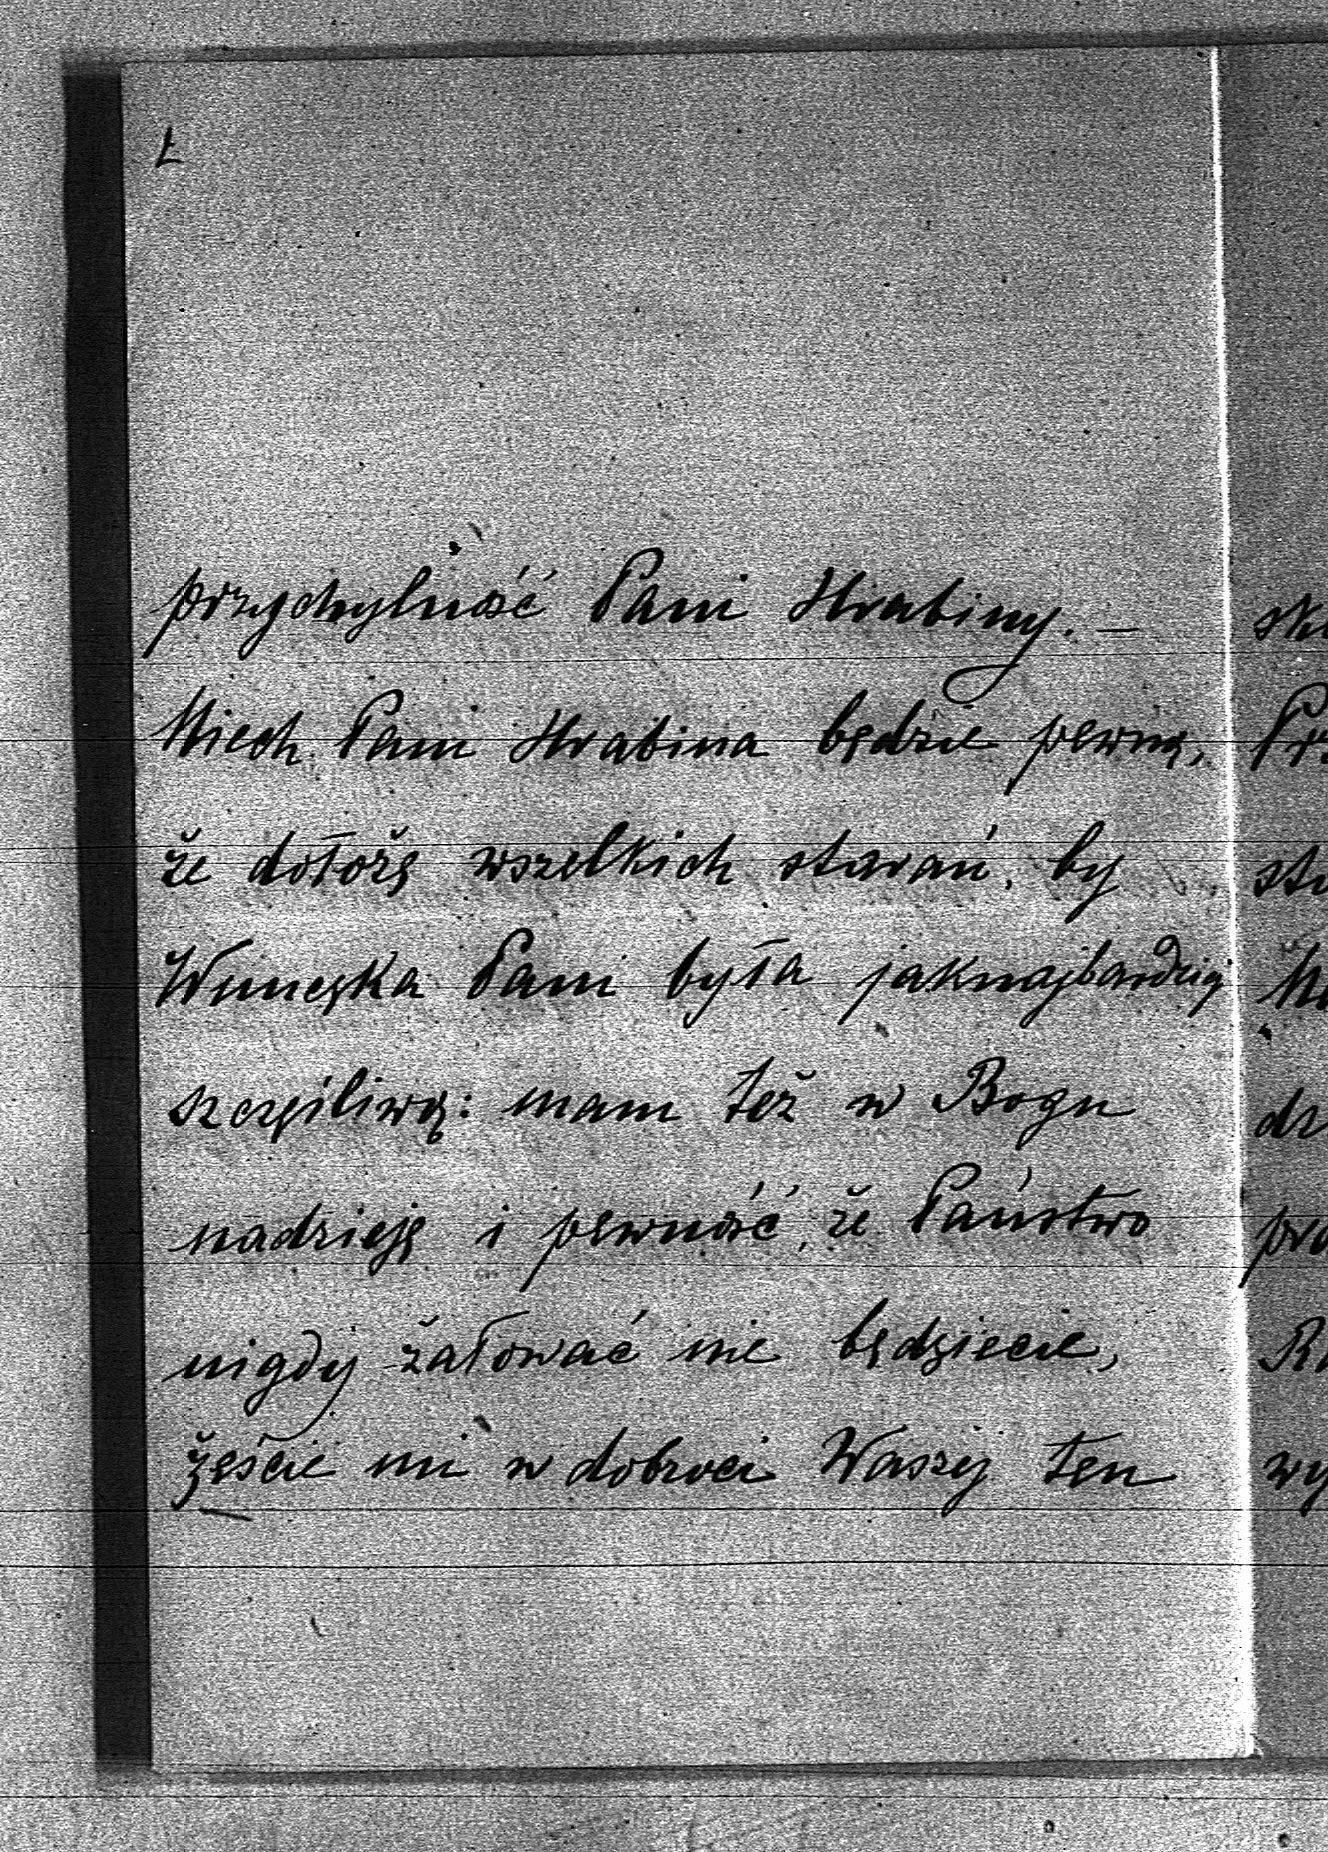 Ł
przychylność Pani Hrabiny. —
Niech Pani Hrabina będzie pewną,
że dołożę wszelkich starań, by
Wnuczka Pani była jaknajbardziej
szczęśliwą: mam też w Bogu
nadzieję i pewność, że Państwo
nigdy żałować nie będziecie,
żeście mi w dobroci Waszéj ten